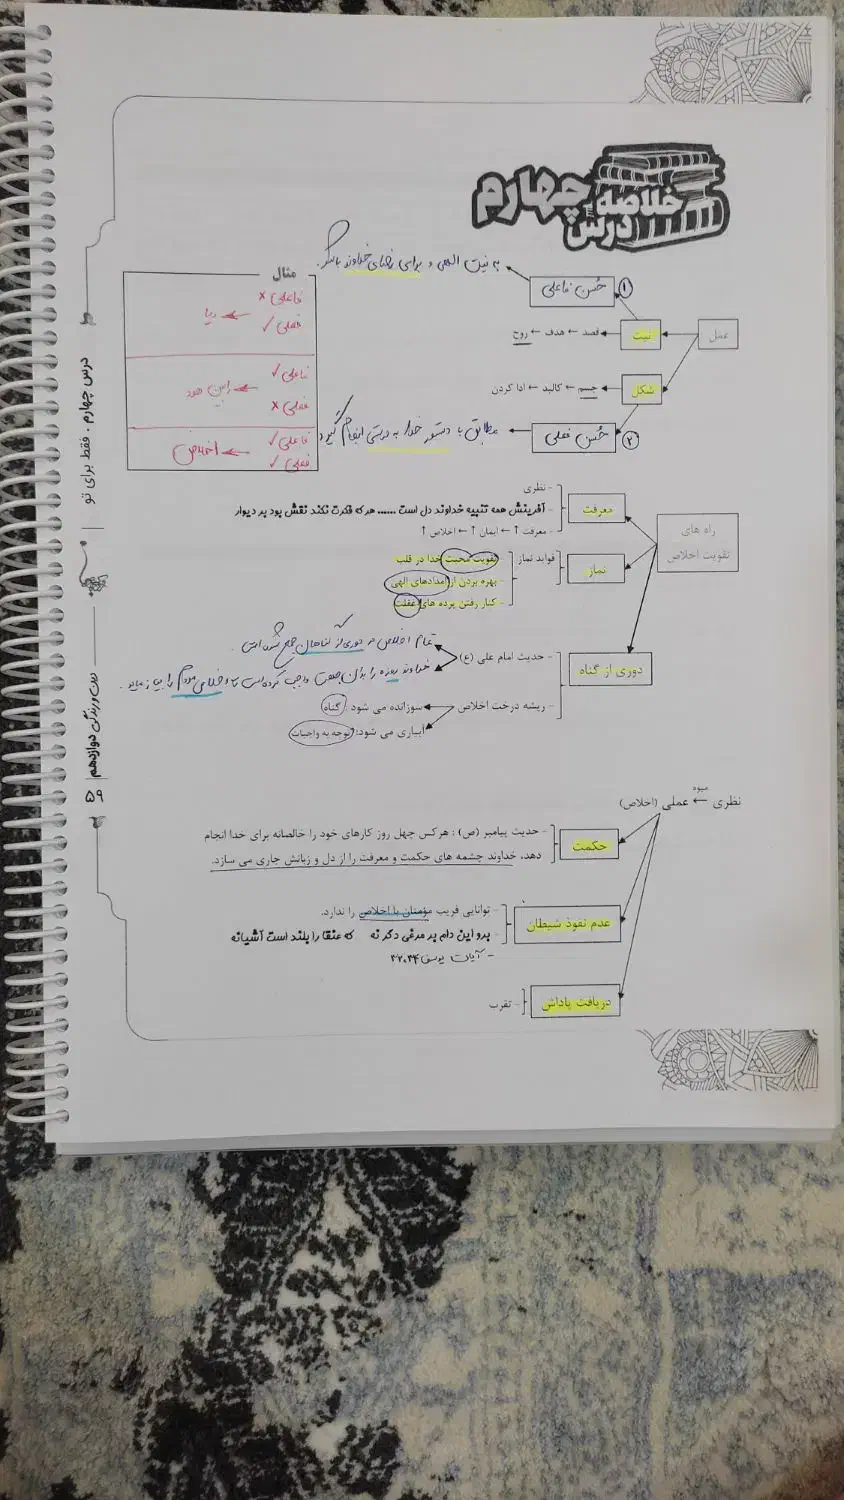 خلاصه درس چهارم
به نیت الهی و برای رضای خداوند باشد.
۱ حُسن فاعلی
عمل
نیت
قصد ← هدف ← روح
شکل
جسم ← کالبد ← ادا کردن
۲ حُسن فعلی
مطابق با دستور خدا به درستی انجام گیرد
مثال
فاعلی ×
فعلی ✓
← ریا
فاعلی ✓
فعلی ×
فاعلی ✓
فعلی ✓
← اخلاص
راه های تقویت اخلاص
معرفت
- نظری
- آفرینش همه تنبیه خداوند دل است ...... هر که فکرت نکند نقش بود بر دیوار
- معرفت ↑ ← ایمان ↑ ← اخلاص ↑
نماز
فواید نماز
- تقویت محبت خدا در قلب
- بهره بردن از امدادهای الهی
- کنار رفتن پرده های غفلت
دوری از گناه
- حدیث امام علی (ع)
تمام اخلاص در دوری از گناهان جمع شده است.
خداوند روزه را برای واجب کرده است تا اخلاص مردم را بیازماید.
- ریشه درخت اخلاص
سوزانده می شود : گناه
آبیاری می شود: توجه به واجبات
میوه
نظری ← عملی (اخلاص)
حکمت
- حدیث پیامبر (ص) : هرکس چهل روز کارهای خود را خالصانه برای خدا انجام
دهد، خداوند چشمه های حکمت و معرفت را از دل و زبانش جاری می سازد.
عدم نفوذ شیطان
- توانایی فریب مؤمنان با اخلاص را ندارد.
- برو این دام بر مرغی دگر نه که عنقا را بلند است آشیانه
- آیات یوسف ۳۴،۳۷
دریافت پاداش
- تقرب
درس چهارم . فقط برای تو
دین و زندگی دوازدهم
۵۹